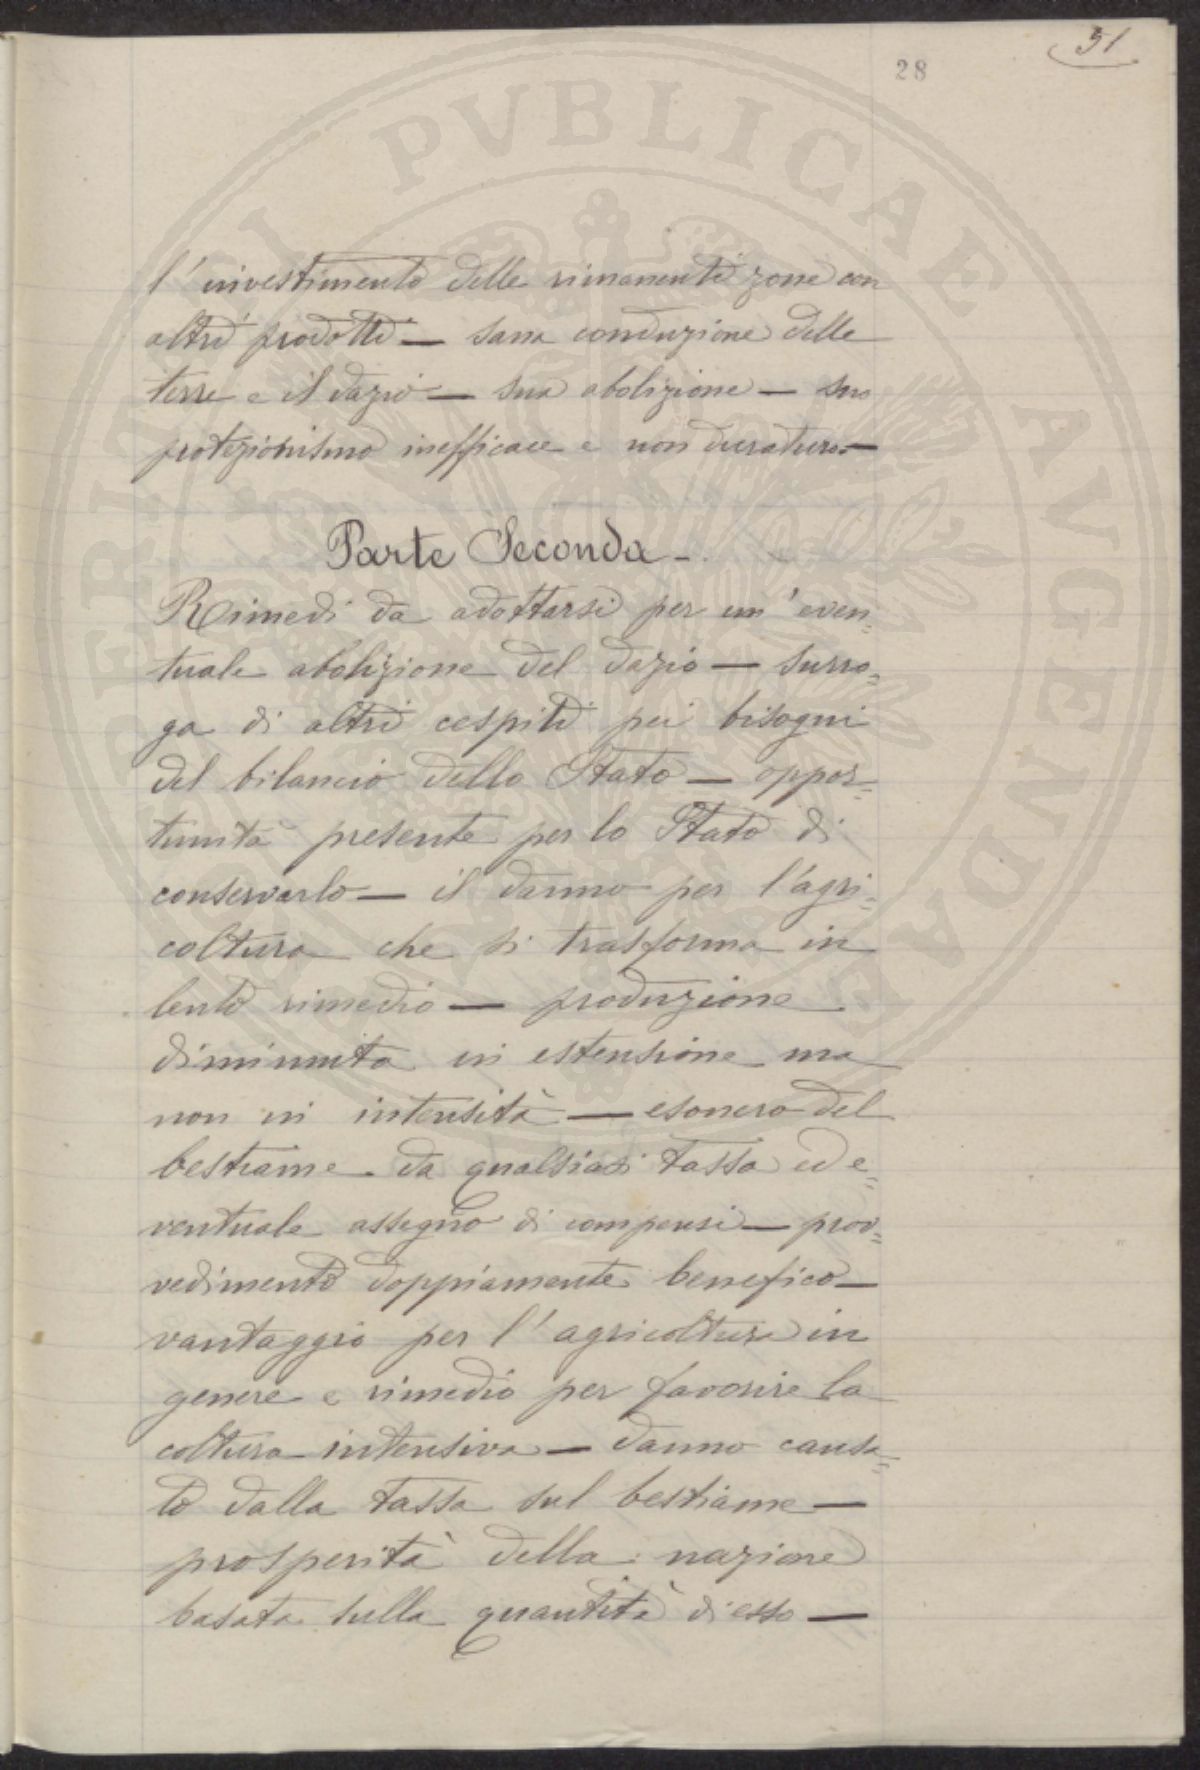 51
28
l'investimento delle rimanenti zone con
altri prodotti — sana conduzione delle
terre e il dazio — sua abolizione — suo
protezionismo inefficace e non duraturo. —
Parte Seconda —.
Rimedi da adottarsi per un'even=
tuale abolizione del dazio — surro=
ga di altri cespiti pei bisogni
del bilancio dello Stato — oppor=
tunità presente per lo Stato di
conservarlo — il danno per l'agri=
coltura che si trasforma in
lento rimedio — produzione
diminuita in estensione ma
non in intensità — esonero del
bestiame da qualsiasi tassa ed e=
ventuale assegno di compensi — prov=
vedimento doppiamente benefico —
vantaggio per l'agricoltura in
genere e rimedio per favorire la
coltura intensiva — danno causa=
to dalla tassa sul bestiame —
prosperità della nazione
basata sulla quantità di esso —
PERIANDI PVBLICAE AVGENDAE